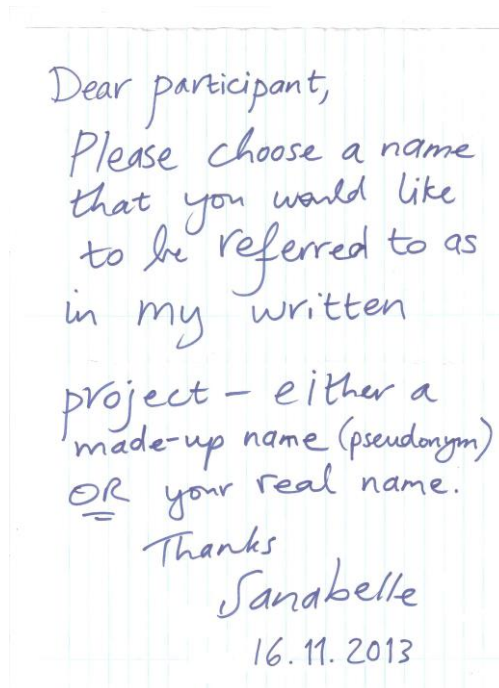 Dear participant,
Please choose a name
that you would like
to be referred to as
in my written
project – either a
made-up name (pseudonym)
OR your real name.
Thanks
Sanabelle
16.11.2013